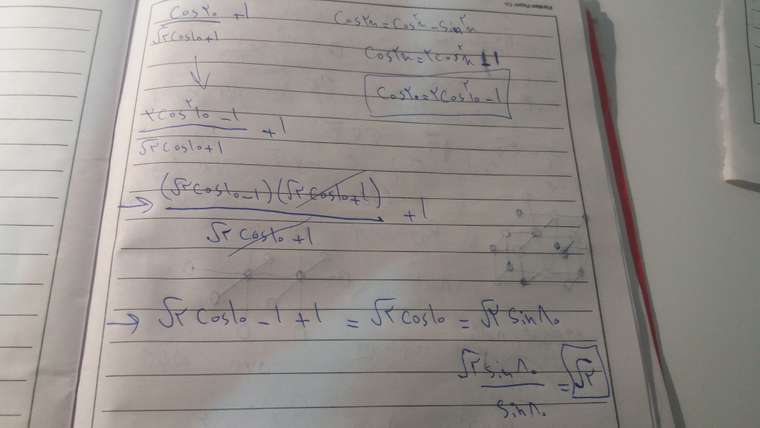 cos۲۰/√۲cos۱۰+۱ +۱
cos۲x=cos²x-sin²x
cos۲x=۲cos²x-۱
cos۲۰=۲cos²۱۰-۱
۲cos²۱۰-۱/√۲cos۱۰+۱ +۱
→ (√۲cos۱۰-۱)(√۲cos۱۰+۱)/√۲cos۱۰+۱ +۱
→ √۲cos۱۰-۱+۱ = √۲cos۱۰ = √۲sin۸۰
√۲sin۸۰/sin۸۰ = √۲